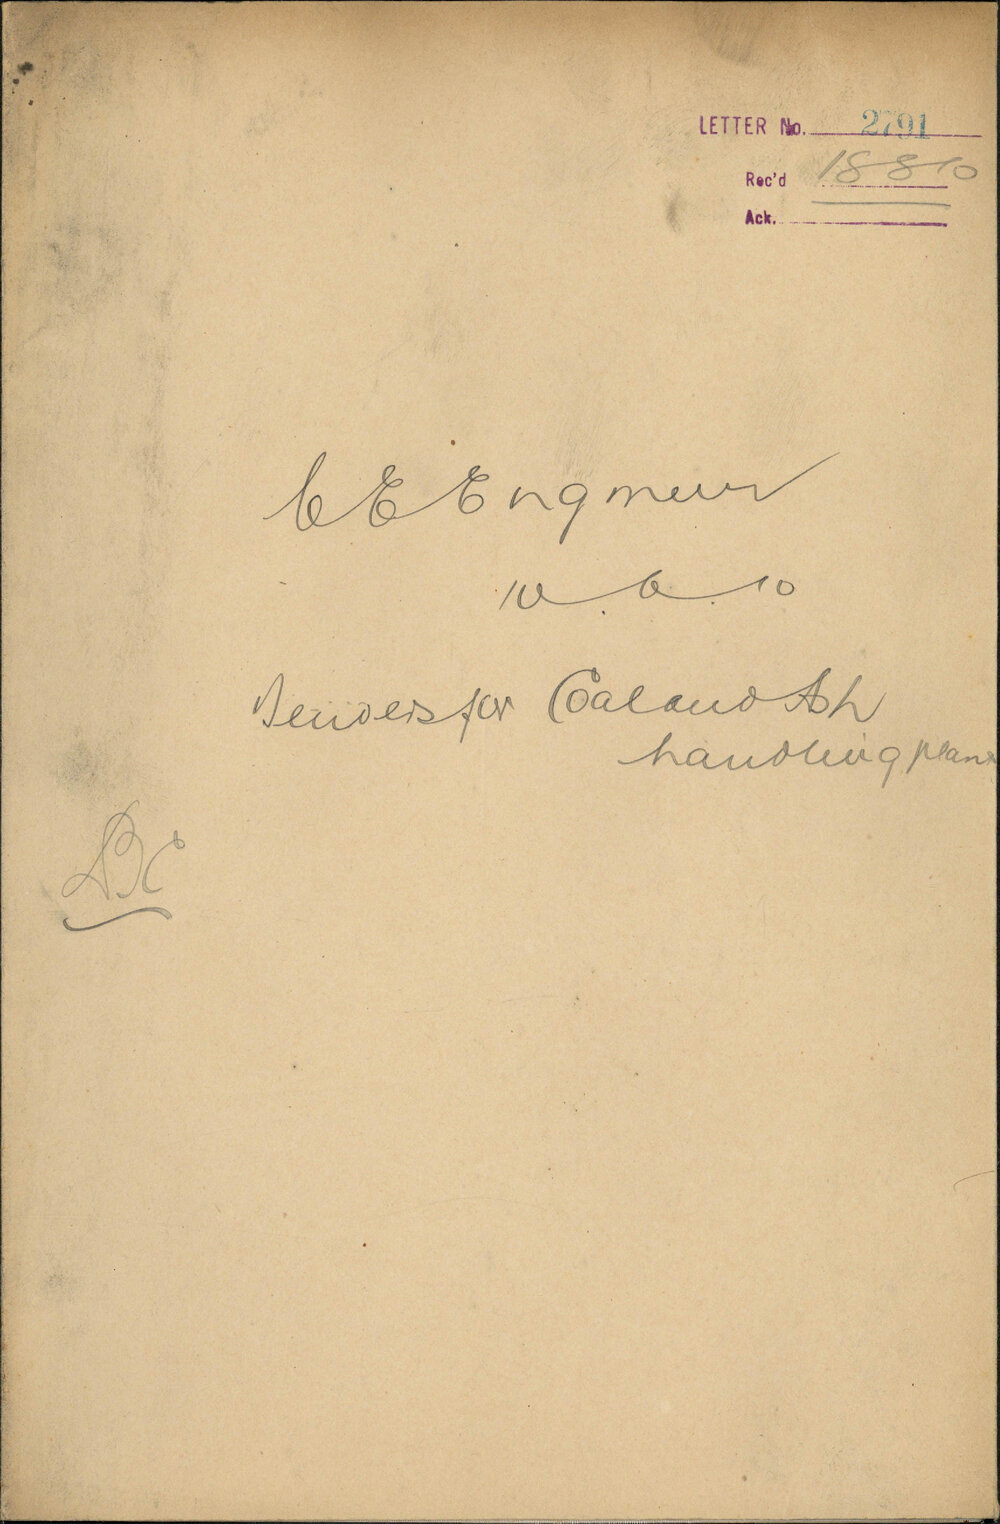 LETTER No. 2791
Rec'd 18 8 10
Ack.
C E Engineer
10. 6. 10
Tenders for Coal and Ash
handling plant